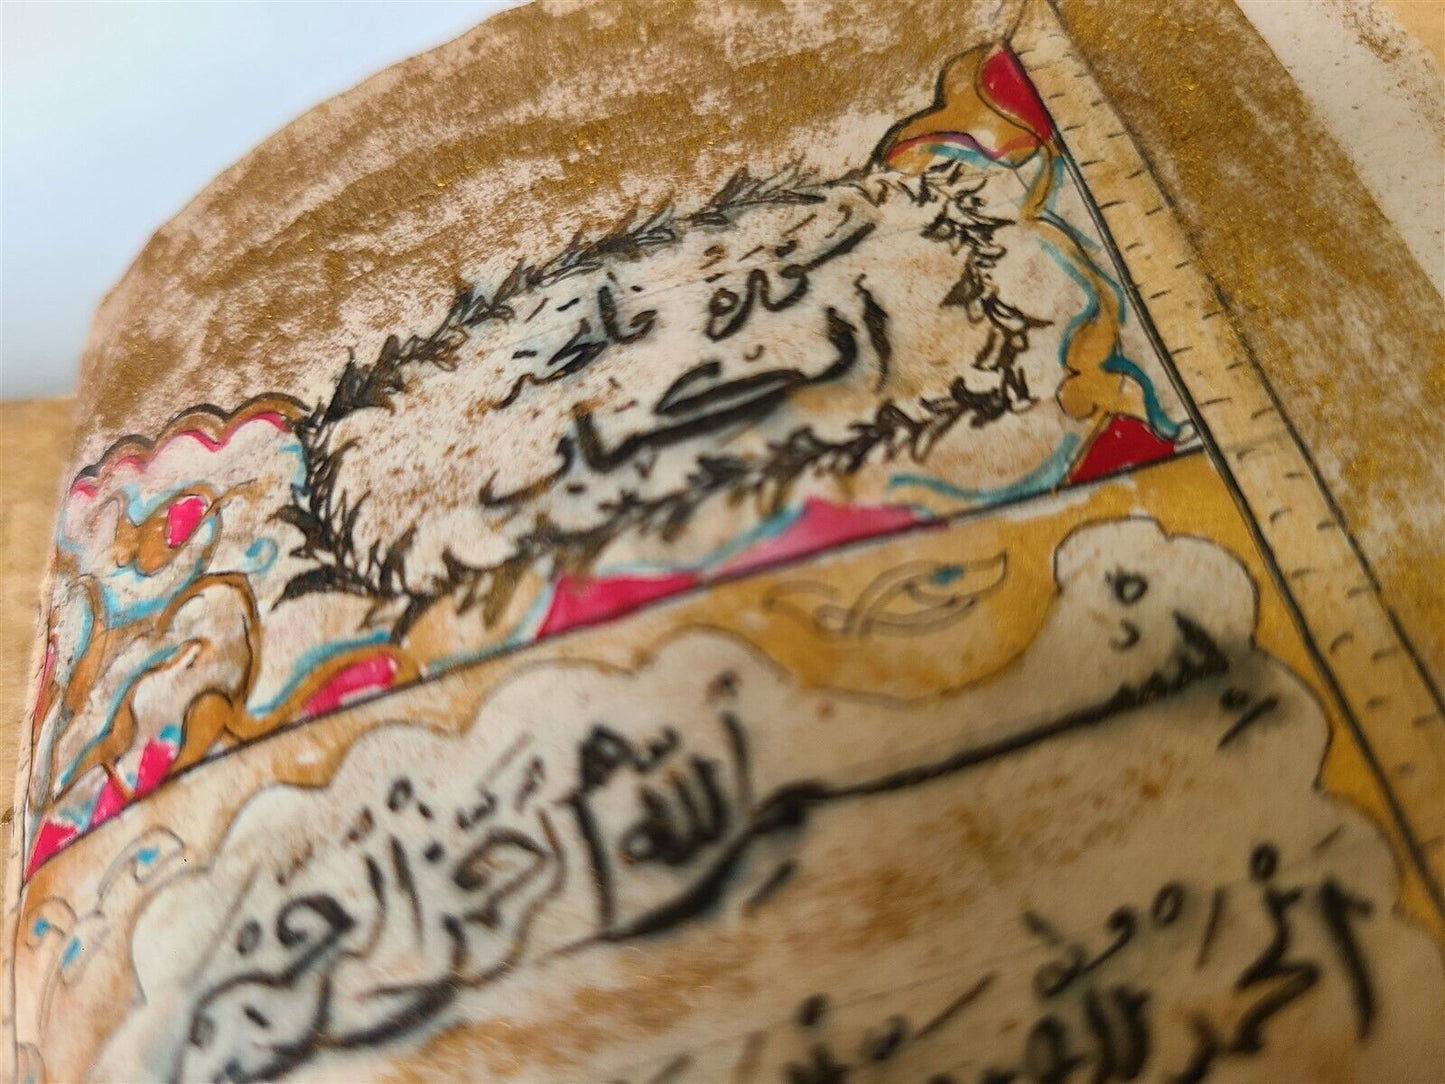 سورة فاتحة
الكتاب
بسم الله الرحمن الرحيم
الحمد لله